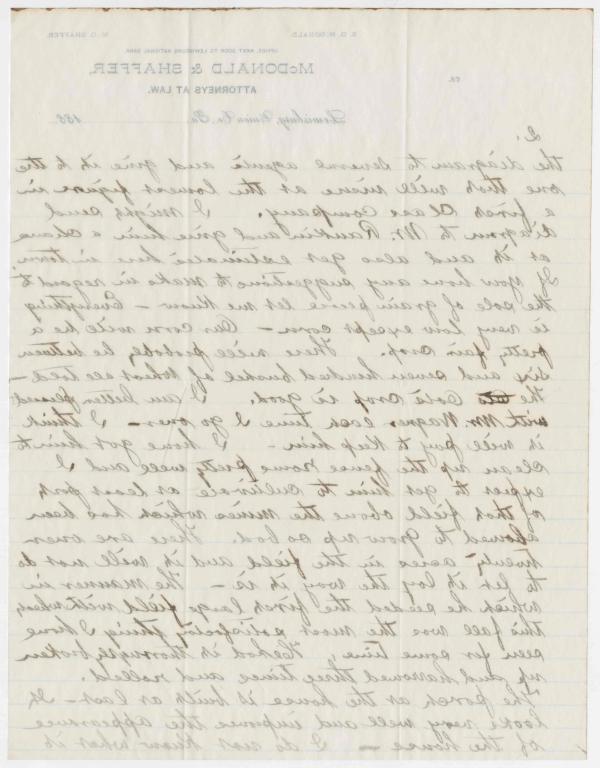 E. D. McDONALD. W. O. SHAFFER.
OFFICE, NEXT DOOR TO LEWISBURG NATIONAL BANK.
McDONALD & SHAFFER,
ATTORNEYS AT LAW.
Lewisburg, Union Co. Pa. 188
2.
the diagram to several agents and give it to the
one that will insure at the lowest figure in
a first class company. I might send
diagram to Mr. Rankin and give him a chance
at it and also get estimate here in town.
If you have any suggestions to make in regard to
the sale of grain please let me know — Everything
is very low except corn — Our corn will be a
pretty fair crop. There will probably be between
six and seven hundred bushel of wheat all told —
the oats crop is good. I am better pleased
with Mr. Wagner each time I go over — I think
it will pay to keep him — I have got him to
clean up the fence rows pretty well and I
expect to get him to cultivate at least part
of that field above the mines which has been
allowed to grow up so bad. There are over
twenty acres in the field and it will not do
to let it lay the way it is — The manner in
which he seeded the first large field with wheat
this fall was the most satisfactory thing I have
seen for some time, He had it thoroughly broken
up and harrowed three times and rolled.
The porch at the house is built at last — It
looks very well and improves the appearance
of the house — I do not know what it